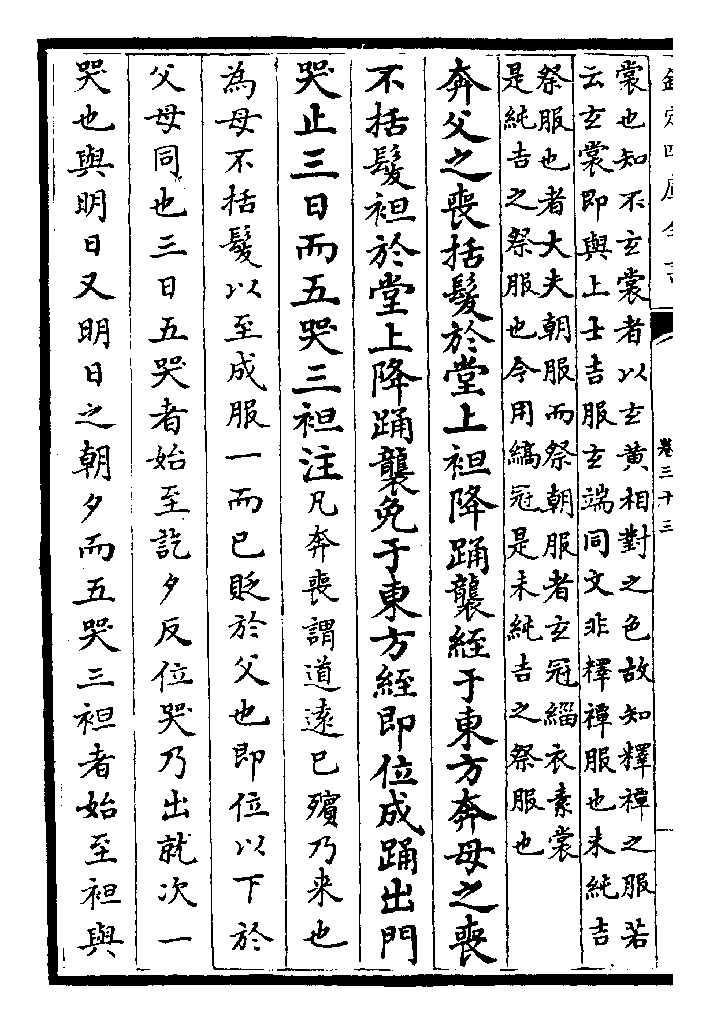 欽定四庫全書
卷三十三
裳也知不玄裳者以玄黃相對之色故知釋禫之服若
云玄裳即與上士吉服玄端同文非釋禫服也未純吉
祭服也者大夫朝服而祭朝服者玄冠緇衣素裳
是純吉之祭服也今用縞冠是未純吉之祭服也
奔父之喪括髮於堂上袒降踊襲絰于東方奔母之喪
不括髮袒於堂上降踊襲免于東方絰即位成踊出門
哭止三日而五哭三袒注凡奔喪謂道遠已殯乃来也
為母不括髮以至成服一而已貶於父也即位以下於
父母同也三日五哭者始至訖夕反位哭乃出就次一
哭也與明日又明日之朝夕而五哭三袒者始至袒與